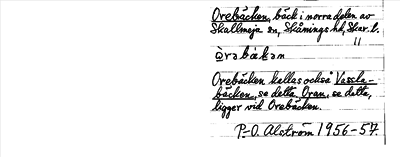 Orebäcken, bäck i norra delen av
Skallmeja sn, Skånings hd, Skar. l.
"
ò̀rəbækən
Orebäcken kallas också Vassla-
bäcken, se detta. Oran, se detta,
ligger vid Orebäcken.
P-O. Alström 1956-57.